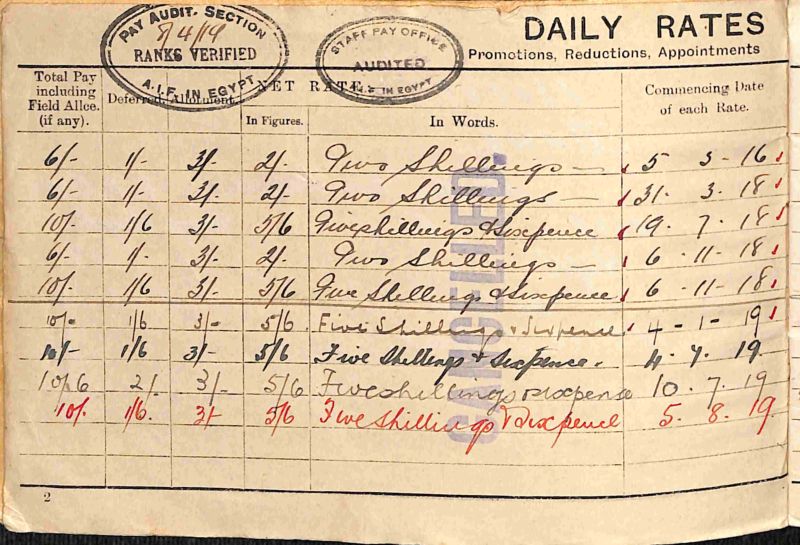 PAY AUDIT. SECTION
8/4/19
RANKS VERIFIED
A.I.F. IN EGYPT
STAFF PAY OFFICE
AUDITED
A.I.F. IN EGYPT
DAILY RATES
Promotions, Reductions, Appointments
Total Pay including Field Allce. (if any).
Deferred.
Allotment.
NET RATE
In Figures.
In Words.
Commencing Date of each Rate.
6/- 1/- 3/- 2/- Two Shillings — 5 3 16
6/- 1/- 3/- 2/- Two Shillings — 31. 3. 18
10/- 1/6 3/- 5/6 Five shillings & Sixpence 19. 7. 18
6/- 1/- 3/- 2/- Two Shillings — 6 - 11 - 18
10/- 1/6 3/- 5/6 Five Shillings & Sixpence 6 - 11 - 18
10/- 1/6 3/- 5/6 Five Shillings & Sixpence 4 - 1 - 19
10/- 1/6 3/- 5/6 Five Shillings & Sixpence. 4. 7. 19.
10/6 2/- 3/- 5/6 Five shillings & sixpence 10. 7. 19
10/- 1/6. 3/- 5/6 Five shillings & Sixpence 5. 8. 19.
CANCELLED.
2